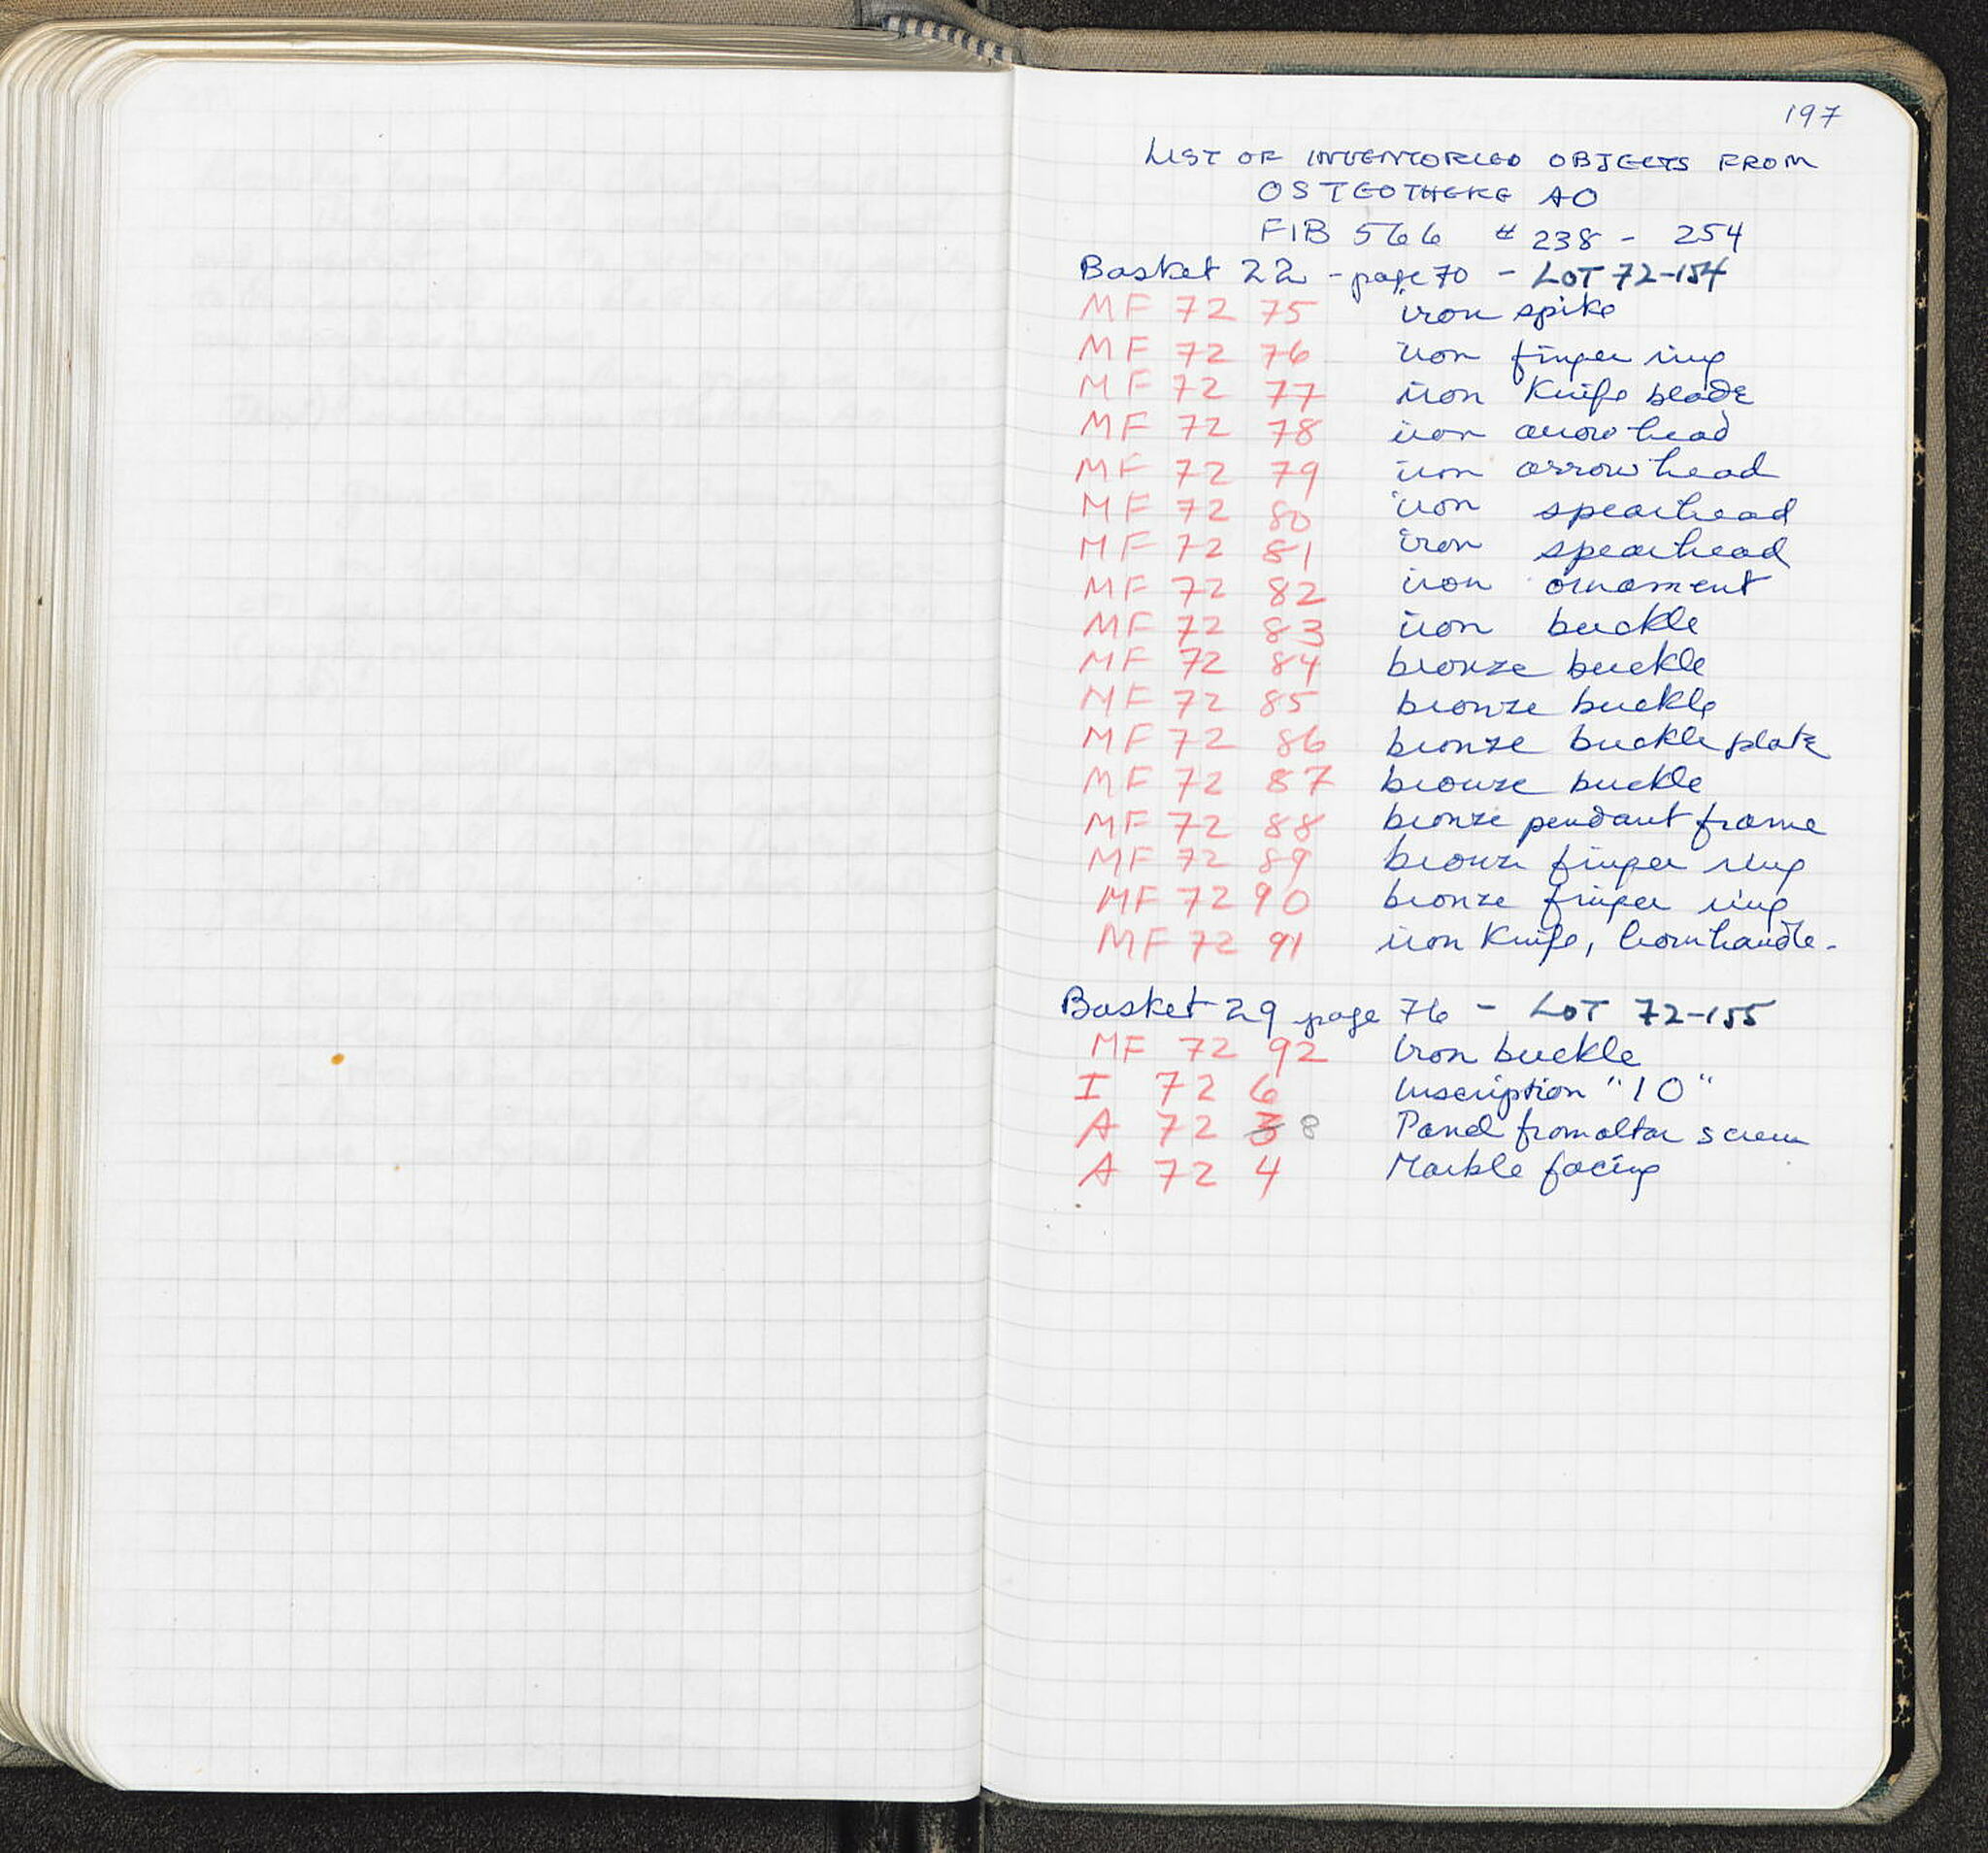 197
LIST OF INVENTORIED OBJECTS FROM
OSTEOTHEKE AO
FIB 566 # 238 - 254
Basket 22 - page 70 - LOT 72-154
MF 72 75 iron spike
MF 72 76 iron finger ring
MF 72 77 iron Knife blade
MF 72 78 iron arrowhead
MF 72 79 iron arrowhead
MF 72 80 iron spearhead
MF 72 81 iron spearhead
MF 72 82 iron ornament
MF 72 83 iron buckle
MF 72 84 bronze buckle
MF 72 85 bronze buckle
MF 72 86 bronze buckle plate
MF 72 87 bronze buckle
MF 72 88 bronze pendant frame
MF 72 89 bronze finger ring
MF 72 90 bronze finger ring
MF 72 91 iron Knife, horn handle.
Basket 29 page 76 - LOT 72-155
MF 72 92 Iron buckle
I 72 6 Inscription "10"
A 72 3 8 Panel from altar screen
A 72 4 Marble facing